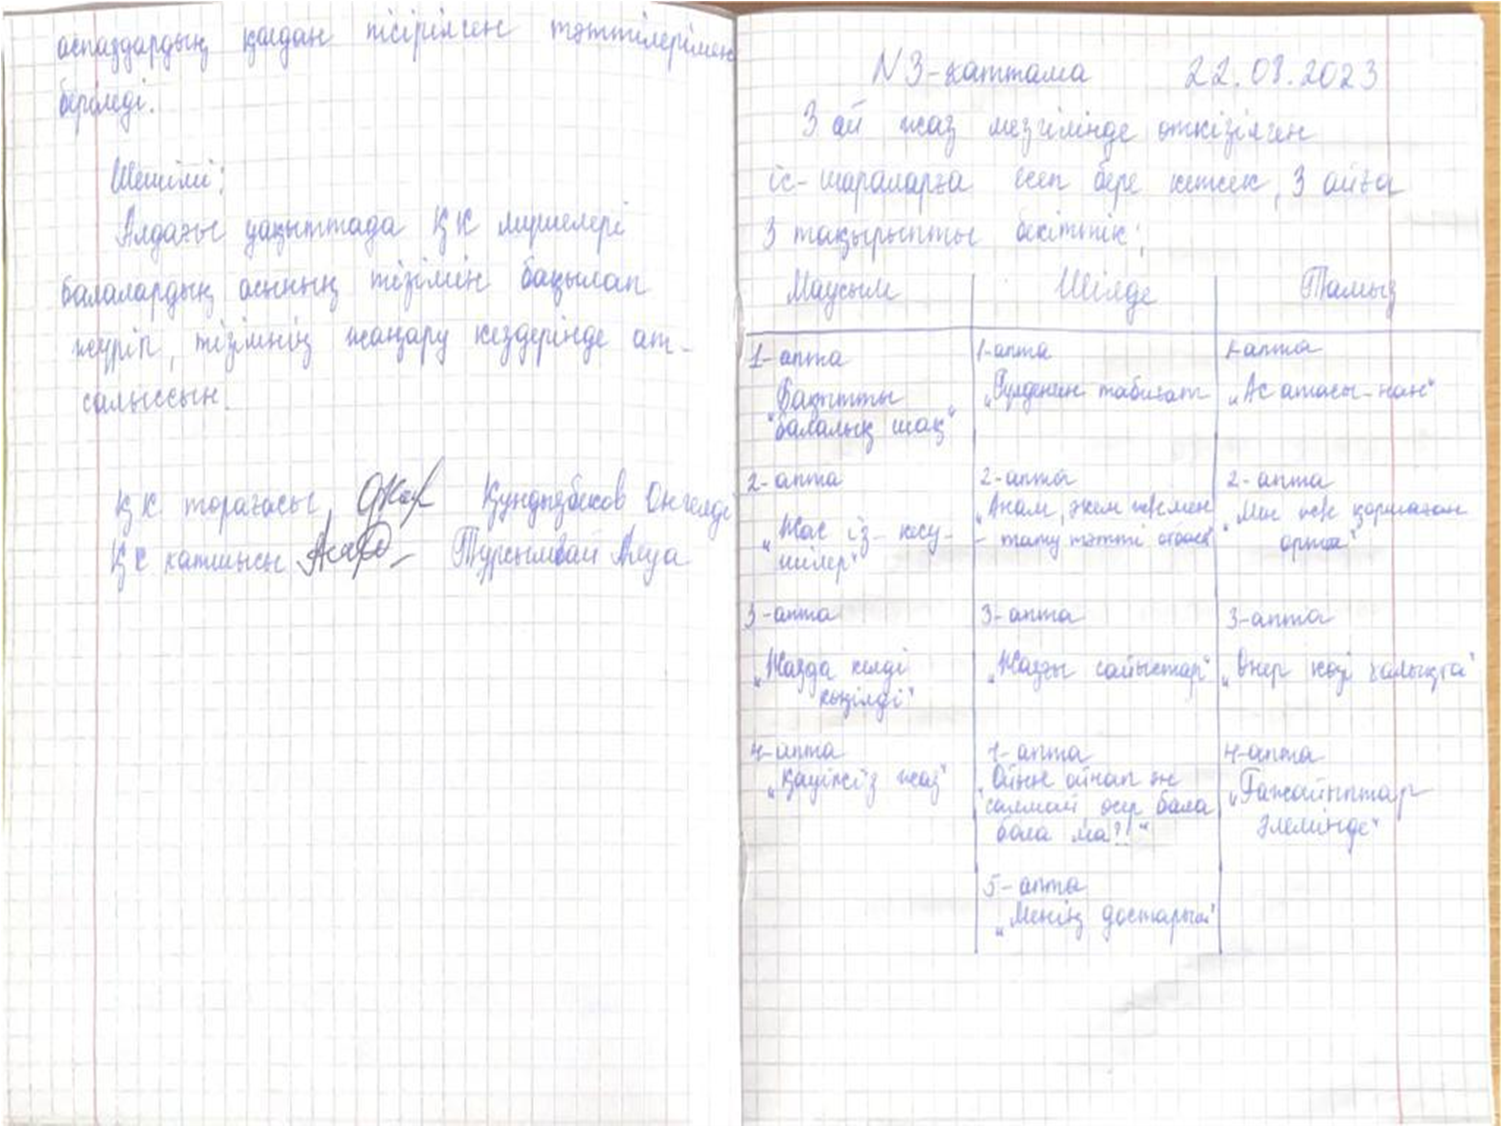 аспаздардың қолдан пісірілген тәттілерімен
беріледі.
Шешімі:
Алдағы уақыттада ҚК мүшелері
балалардың асының тізімін бақылап
жүріп, тізімнің жаңару кездерінде ат-
салыссын.
ҚК торағасы Құндызбеков Онгелді
ҚК хатшысы Тұрсымбай Алуа
N3-хаттама 22.08.2023
3 ай жаз мезгілінде өткізілген
іс-шараларға есеп бере кетсек, 3 айға
3 тақырыпты бекіттік;
Маусым Шілде Тамыз
1-апта
"Бақытты
балалық шақ"
2-апта
"Жас із-кесу-
шілер"
3-апта
"Жазда келді
көңілді"
4-апта
"Қауіпсіз жаз"
1-апта
"Гүлденген табиғат
2-апта
"Анам, әкем және мен
- тату тәтті отбасы"
3-апта
"Жазғы сайыстар"
4-апта
"Ойын ойнап ән
салмай өсер бала
бола ма?!"
5-апта
"Менің достарым"
1-апта
"Ас атасы-нан"
2-апта
"Мен және қоршаған
орта"
3-апта
"Өнер көзі халықта"
4-апта
"Ғажайыптар
әлемінде"